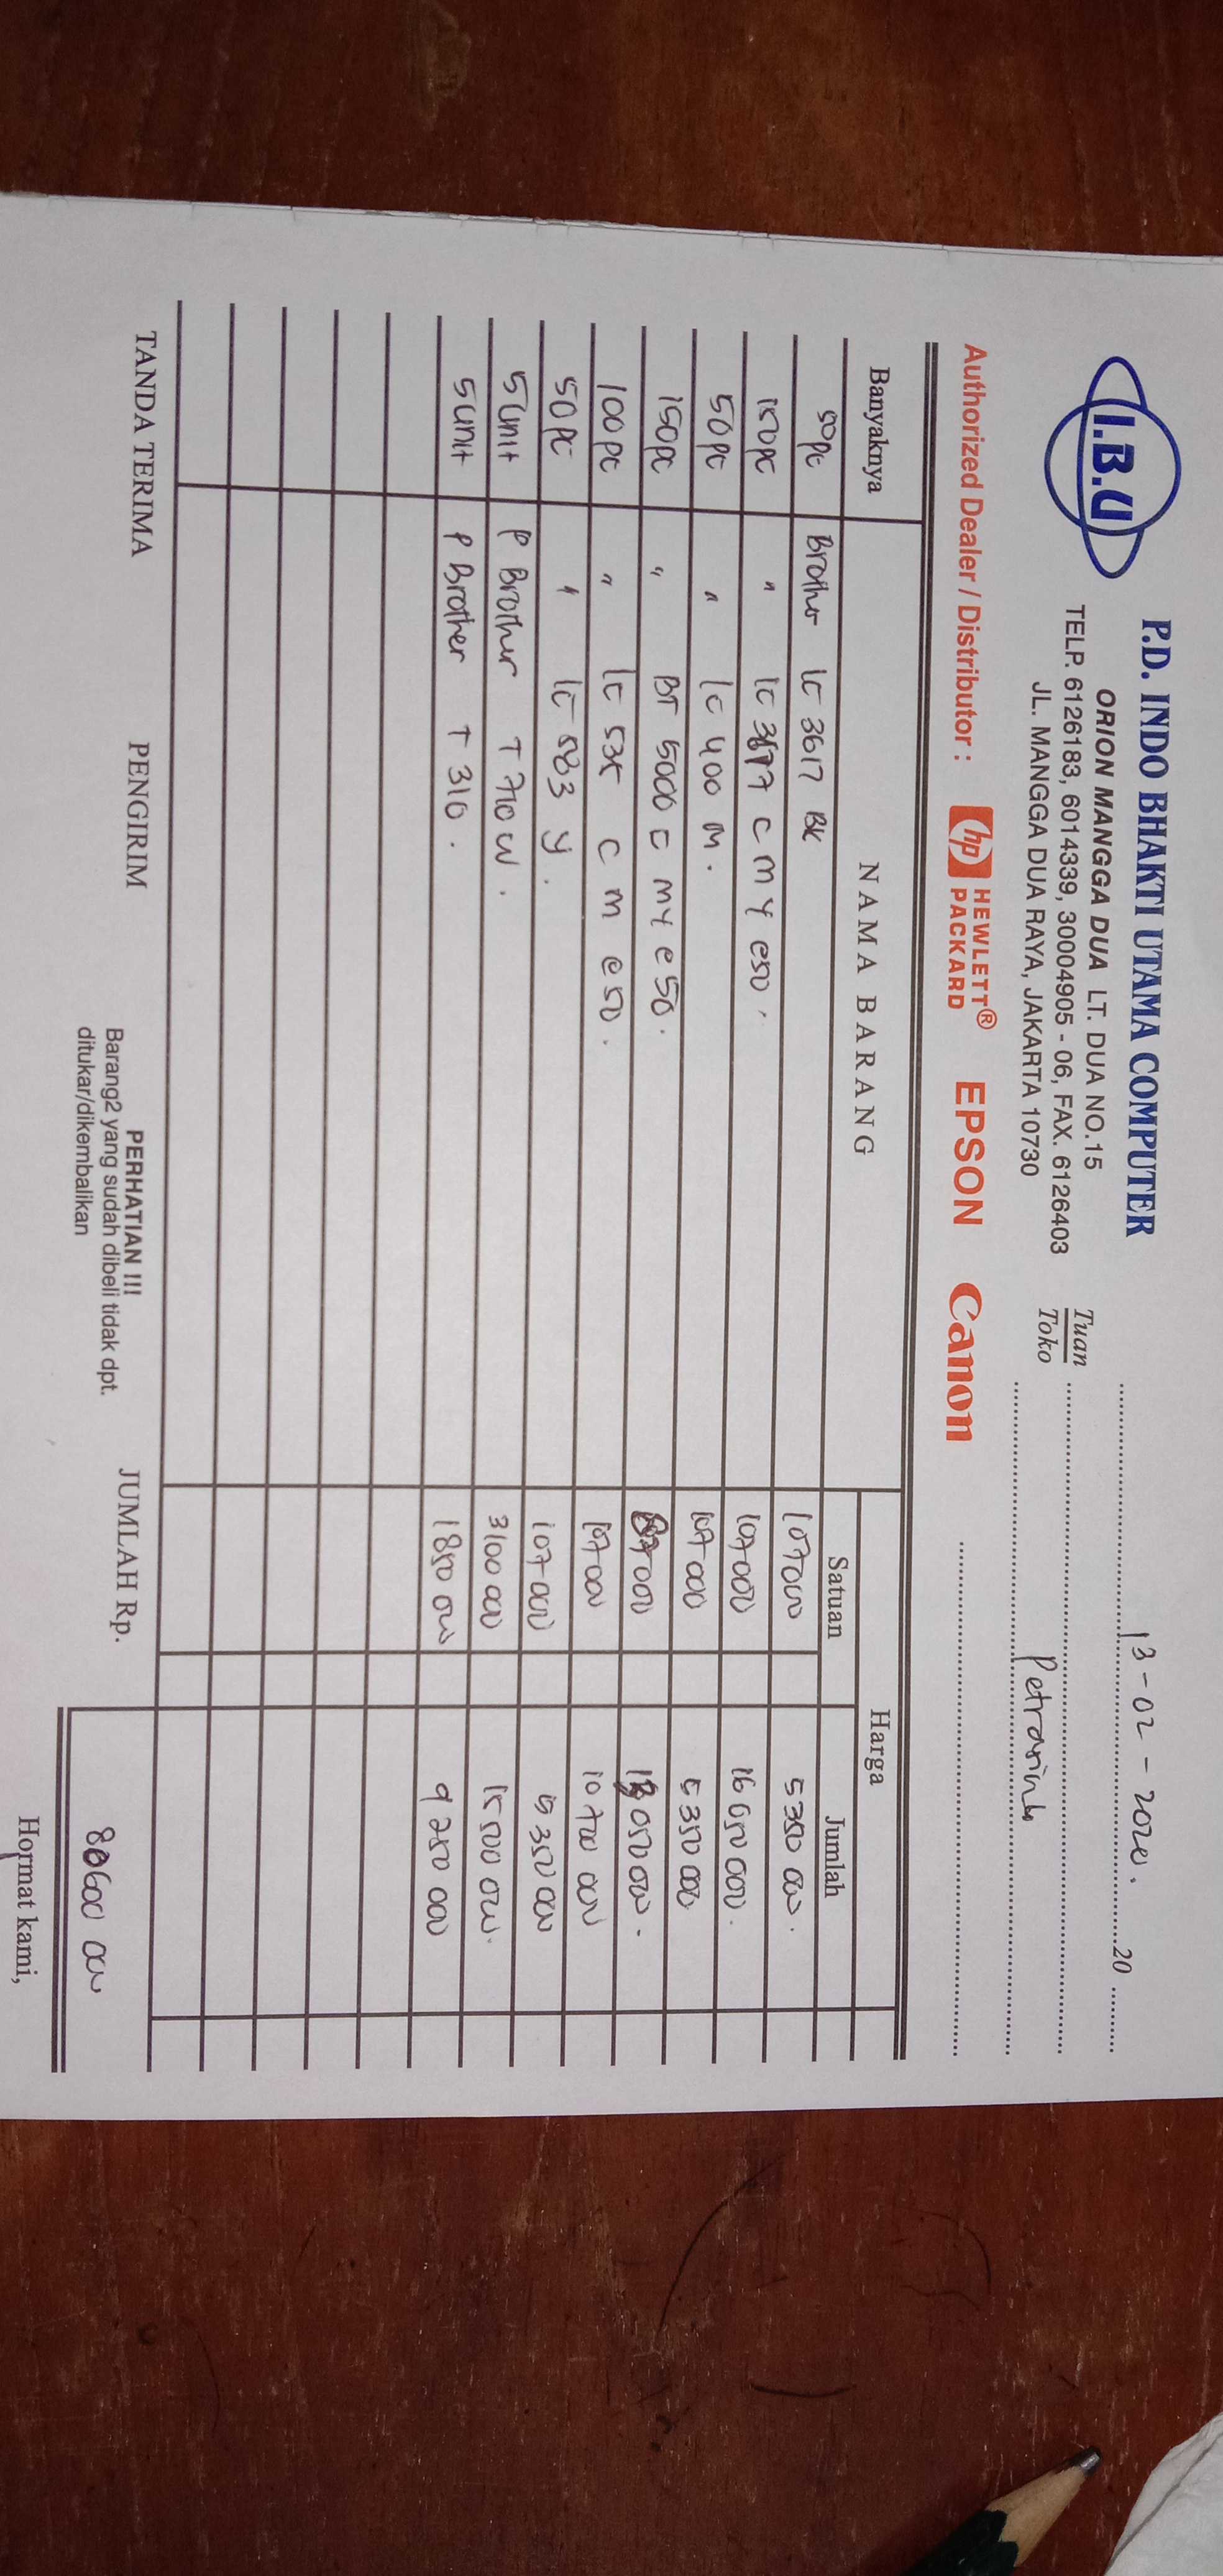 I.B.U
P.D. INDO BHAKTI UTAMA COMPUTER
ORION MANGGA DUA LT. DUA NO.15
TELP. 6126183, 6014339, 30004905 - 06, FAX. 6126403
JL. MANGGA DUA RAYA, JAKARTA 10730
13-02-2020. 20
Tuan
Toko
Petrarinho
Authorized Dealer / Distributor : hp HEWLETT® PACKARD EPSON Canon
Banyaknya NAMA BARANG Harga
Satuan Jumlah
50pc Brother lc 3617 BK 107000 5350 000.
150pc " lc 3617 c m y e50. 107000 16 050 000.
50pc " lc 400 M. 107 000 5 350 000
150pc " BT 5000 c my e 50. 87000 13 050 000.
100pc " lc 535 c m e 50. 107 000 10 700 000
50pc " lc 583 y. 107 000 5 350 000
5 unit P Brother T 710 W. 3100 000 15 500 000.
5 unit P Brother T 310. 1850 000 9 250 000
TANDA TERIMA PENGIRIM
PERHATIAN !!!
Barang2 yang sudah dibeli tidak dpt.
ditukar/dikembalikan
JUMLAH Rp. 80600 000
Hormat kami,